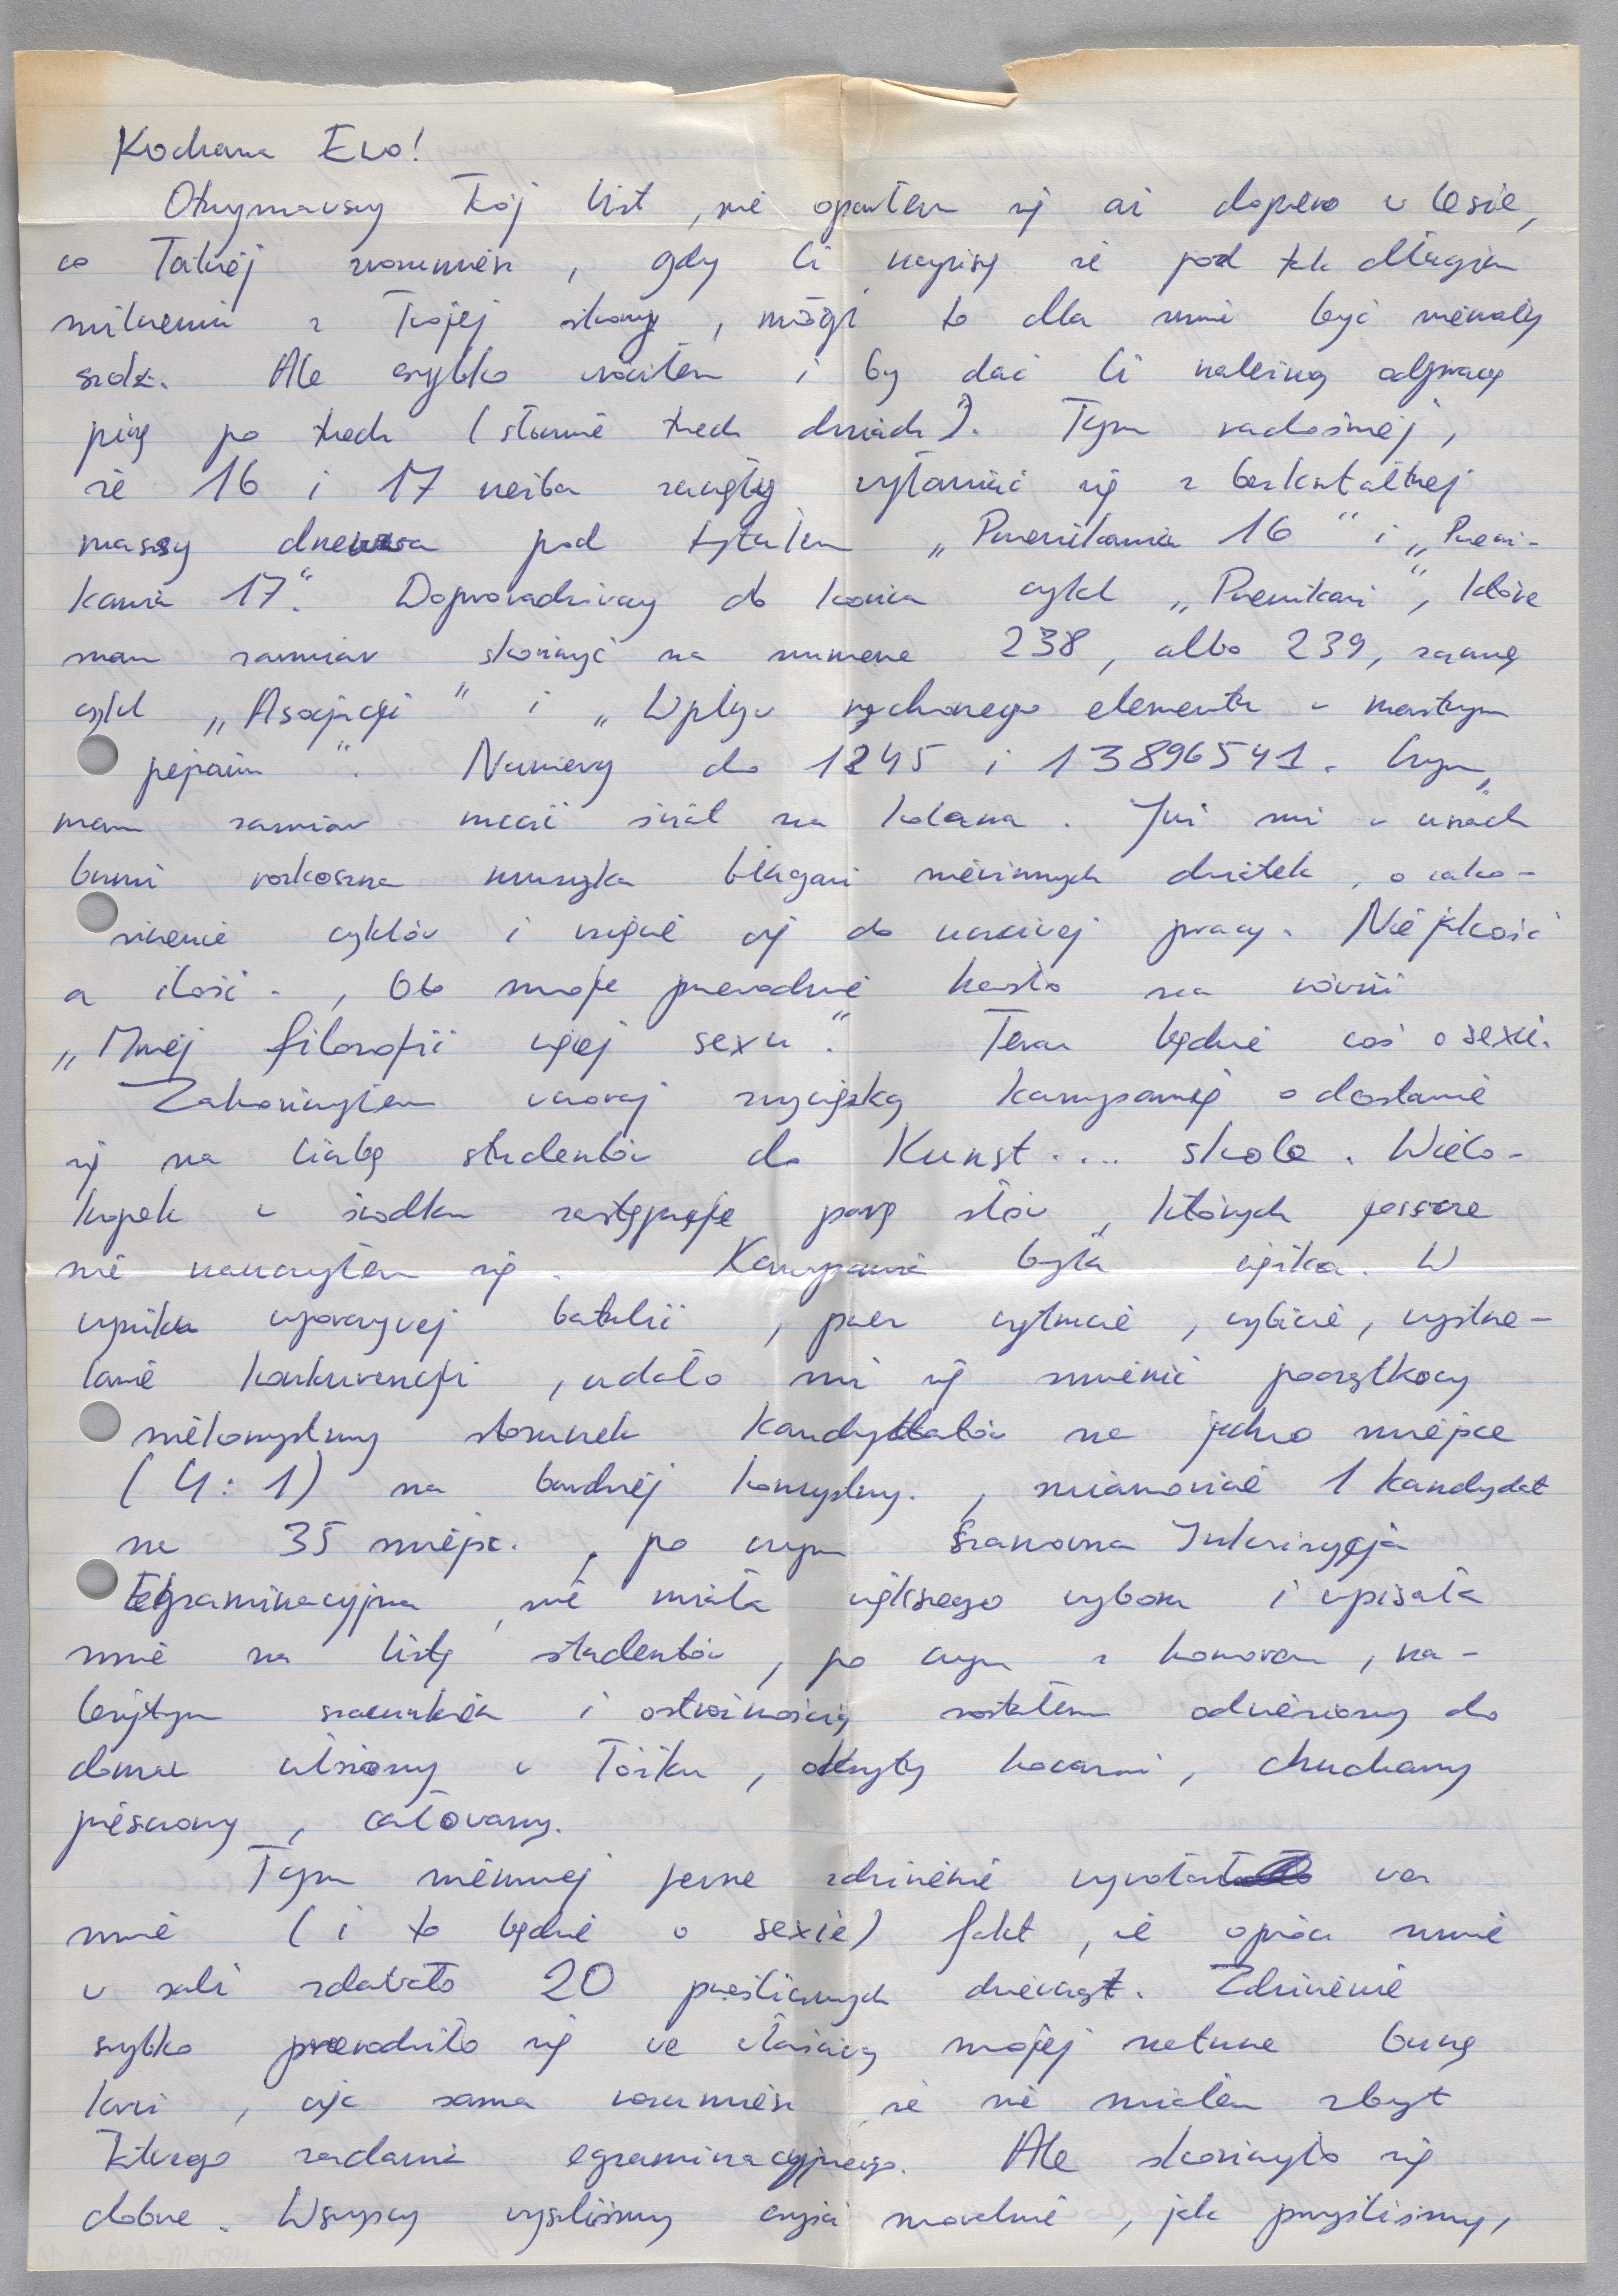 Kochana Ewo!
Otrzymawszy Twój list, nie oparłem się aż dopiero w lesie,
co łatwiej zrozumiesz, gdy Ci napiszę że pod tak długim
milczeniu z Twojej strony, mógł to dla mnie być niemały
szok. Ale szybko wróciłem i by dać Ci należną odprawę
piszę po trzech (słownie trzech dniach). Tym radośniej,
że 16 i 17 rzeźba zaczęły wyłaniać się z bezkształtnej
masy drewna pod tytułem „Przenikania 16" i „Przeni-
kania 17". Doprowadziwszy do końca cykl „Przenikań", które
mam zamiar skończyć na numerze 238, albo 239, zacznę
cykl „Asocjacji" i „Wpływ ruchomego elementu w martwym
pejzażu". Numery do 1245 i 13896541. Czym,
mam zamiar rzucić świat na kolana. Już mi w uszach
brzmi rozkoszna muzyka błagań niewinnych dziatek, o zakoń-
czenie cyklów i wzięcie się do uczciwej pracy. Nie jakość
a ilość., Oto moje przewodnie hasło na równi
„Mniej filozofii więcej sexu." Teraz będzie coś o sexie.
Zakończyłem wczoraj zwycięską kampanię o dostanie
się na listę studentów do Kunst.... skole. Wielo-
kropek w środku zastępuje parę słów, których jeszcze
nie nauczyłem się. Kampania była ciężka. W
wyniku uporczywej batalii, przez wytrucie, wybicie, wystrze-
lanie konkurencji, udało mi się zmienić początkowy
niekorzystny stosunek kandydatów na jedno miejsce
(4:1) na bardziej korzystny., mianowicie 1 kandydat
na 35 miejsc., po czym Szanowna Inkwizycja
Egzaminacyjna, nie miała większego wyboru i wpisała
mnie na listę studentów, po czym z honorem, na-
leżytym szacunkiem i ostrożnością zostałem odwieziony do
domu ułożony w łóżku, okryty kocami, chuchany
pieszczony, całowany.
Tym niemniej pewne zdziwienie wywołał we
mnie (i to będzie o sexie) fakt, że oprócz mnie
w sali zdawało 20 prześlicznych dziewcząt. Zdziwienie
szybko przerodziło się we właściwą mojej naturze burzę
krwi, więc sama rozumiesz że nie miałem zbyt
łatwego zadania egzaminacyjnego. Ale skończyło się
dobrze. Wszyscy wyszliśmy czyści moralnie, jak przyszliśmy,